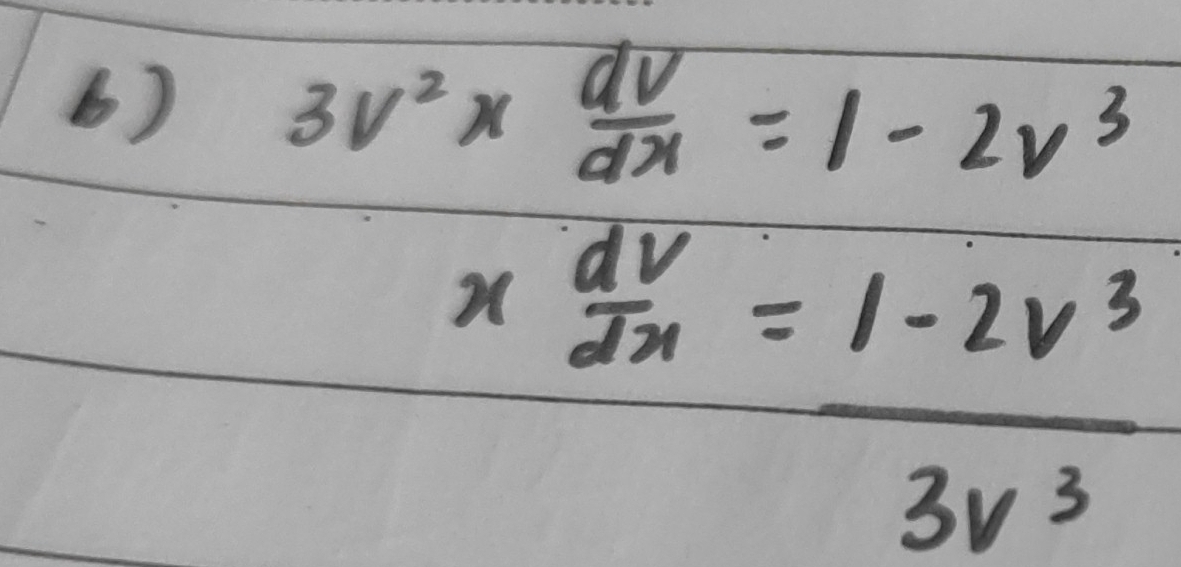 b) 3v² x dv/dx = 1 - 2v³
x dv/dx = 1 - 2v³
3v³